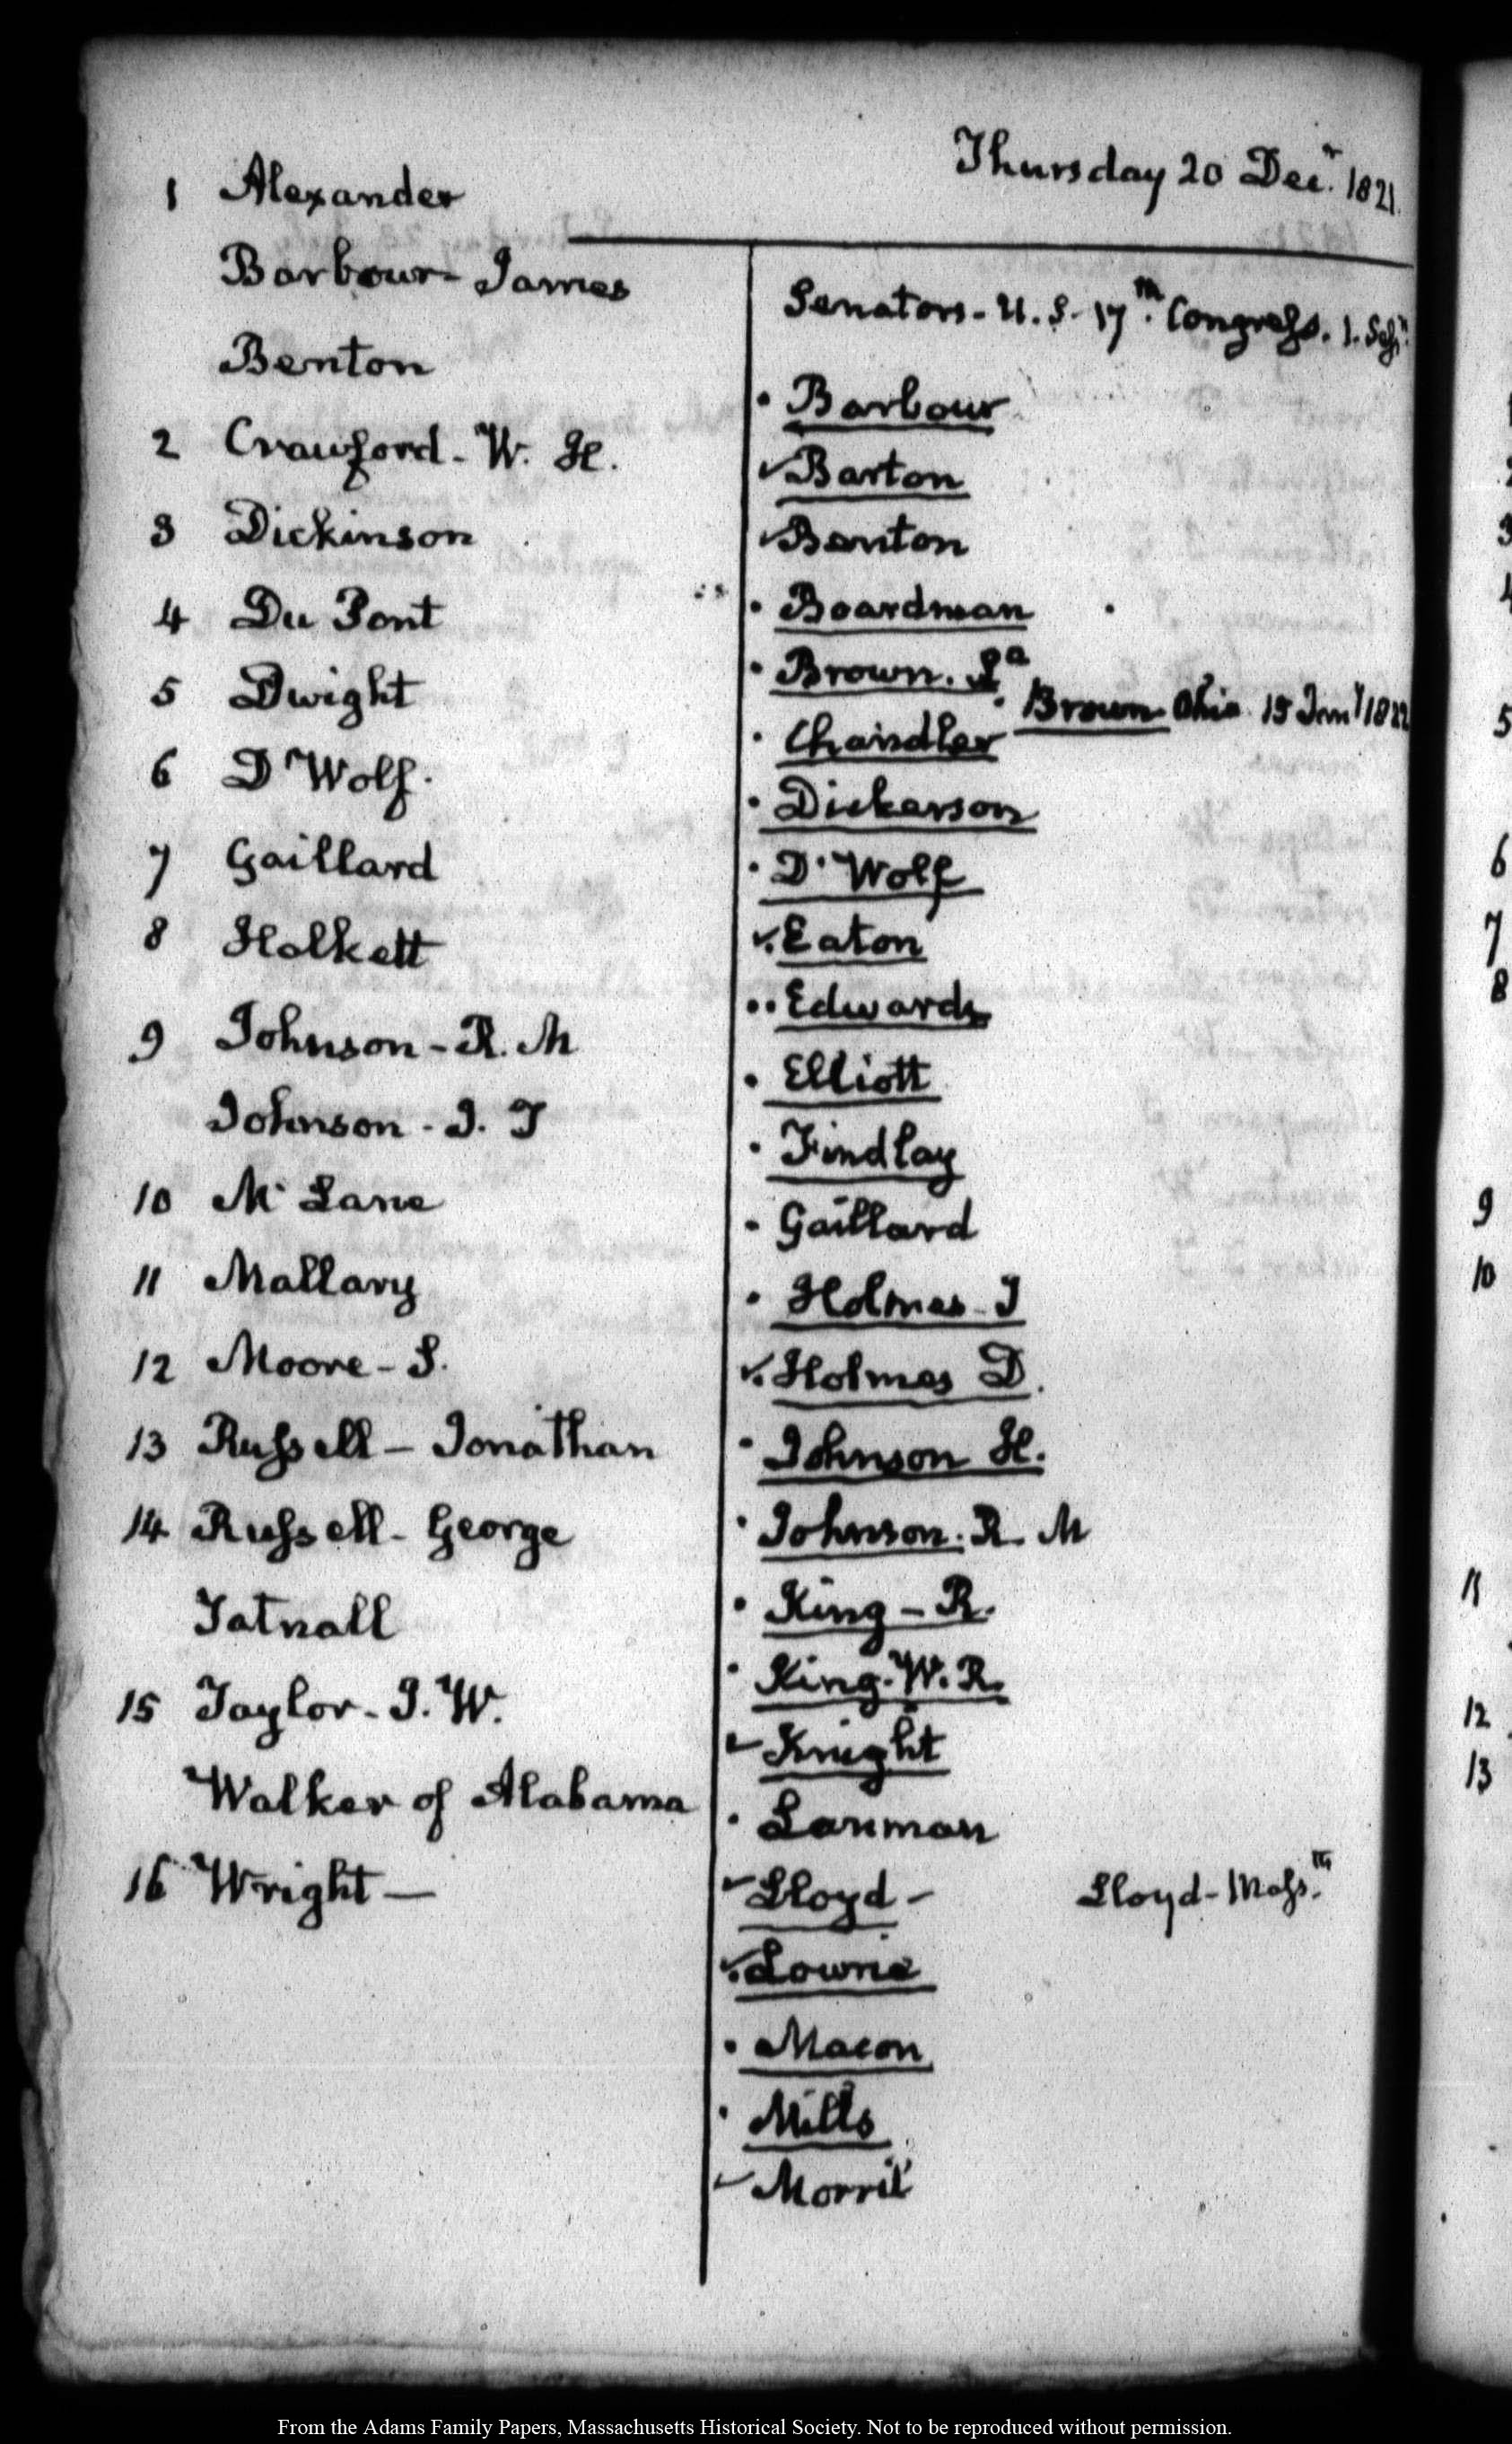 Thursday 20 Decr. 1821.
1 Alexander
Barbour - James
Benton
2 Crawford - W. H.
3 Dickinson
4 Du Pont
5 Dwight
6 D'Wolf.
7 Gaillard
8 Halkett
9 Johnson - R. M
Johnson - J. T
10 Mc Lane
11 Mallary
12 Moore - S.
13 Russell - Jonathan
14 Russell - George
Tatnall
15 Taylor - J. W.
Walker of Alabama
16 Wright —
Senators - U. S. 17th. Congress. 1. Sessn.
Barbour
Barton
Benton
Boardman
Brown. La
Brown Ohio 15 Jany 1822
Chandler
Dickerson
D'Wolf
Eaton
Edwards
Elliott
Findlay
Gaillard
Holmes - J
Holmes D.
Johnson H.
Johnson. R. M
King - R.
King. W. R.
Knight
Lanman
Lloyd - Lloyd - Massts.
Lowrie
Macon
Mills
Morril
3
5
6
7
8
9
10
11
12
13
From the Adams Family Papers, Massachusetts Historical Society. Not to be reproduced without permission.